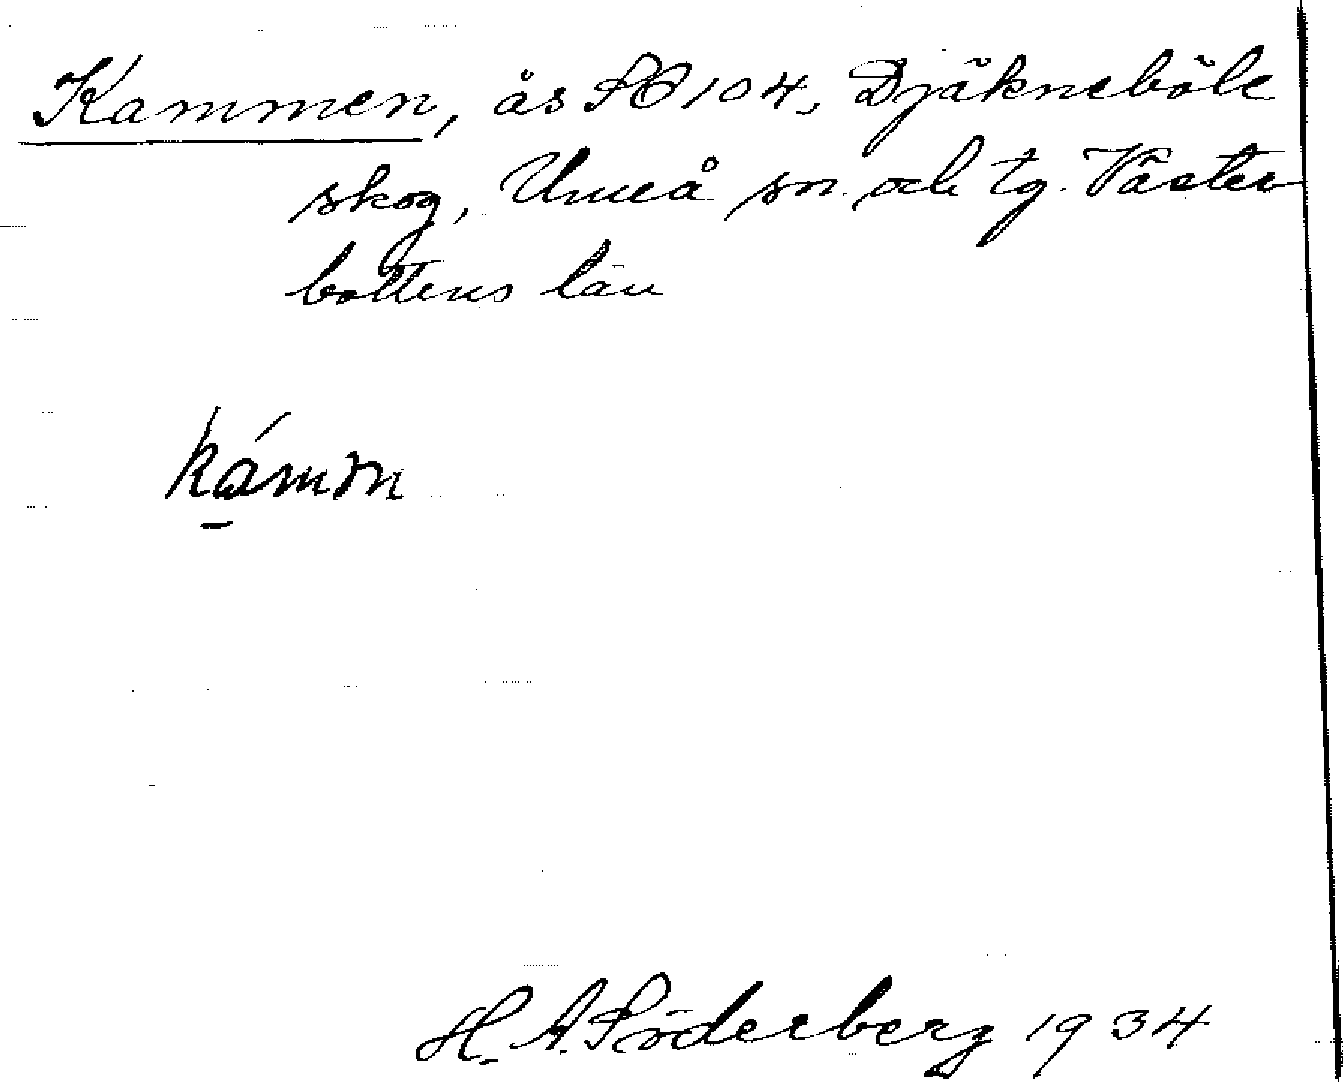 Kammen, ås SO 104, Djäkneböle
skog, Umeå sn. och tg. Väster
bottens län
kámɤn
H. A. Söderberg 1934